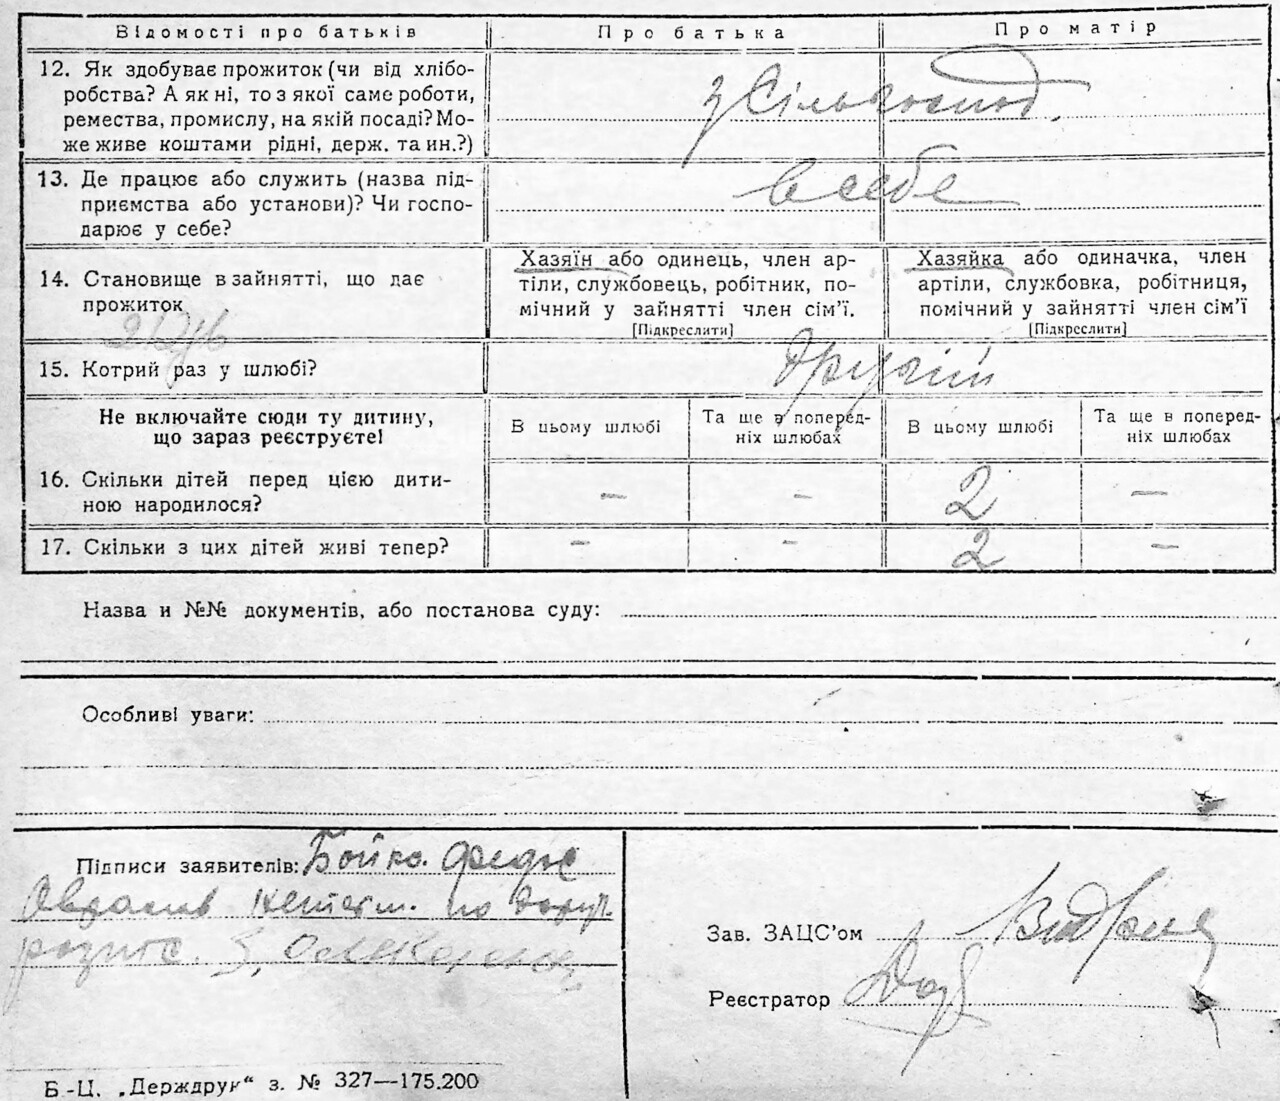 Відомості про батьків Про батька Про матір
12. Як здобуває прожиток (чи від хлібо-
робства? А як ні, то з якої саме роботи,
ремества, промислу, на якій посаді? Мо-
же живе коштами рідні, держ. та ин.?)
з Сільгоспод.
13. Де працює або служить (назва під-
приємства або установи)? Чи госпо-
дарює у себе?
в себе
14. Становище в зайнятті, що дає
прожиток
Хазяїн або одинець, член ар-
тіли, службовець, робітник, по-
мічний у зайнятті член сім'ї.
[Підкреслити]
Хазяйка або одиначка, член
артіли, службовка, робітниця,
помічний у зайнятті член сім'ї
[Підкреслити]
15. Котрий раз у шлюбі?
другий
Не включайте сюди ту дитину,
що зараз реєструєте!
В цьому шлюбі
Та ще в поперед-
ніх шлюбах
В цьому шлюбі
Та ще в поперед-
ніх шлюбах
16. Скільки дітей перед цією дити-
ною народилося?
– – 2 –
17. Скільки з цих дітей живі тепер?
– – 2 –
Назва и №№ документів, або постанова суду:
Особливі уваги:
Підписи заявителів: Бойко
по
Зав. ЗАЦС'ом
Реєстратор
Б.-Ц. „Держдрук“ з. № 327—175.200